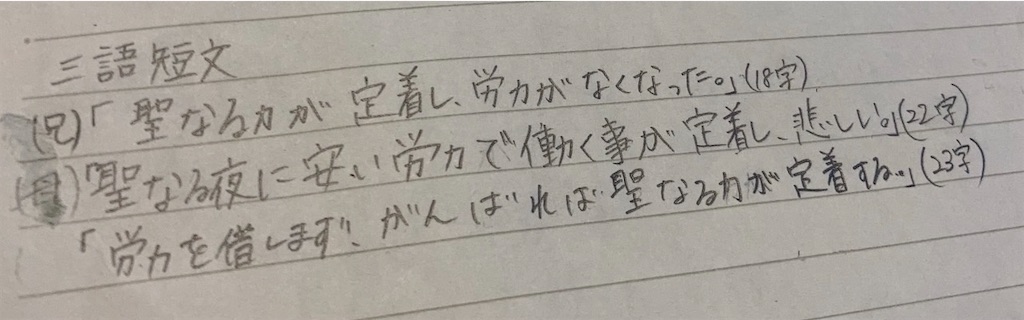 三語短文
(兄)「聖なる力が定着し、労力がなくなった。」(18字)
(母)「聖なる夜に安い労力で働く事が定着し、悲しい。」(22字)
「労力を借します、がんばれば聖なる力が定着する。」(23字)